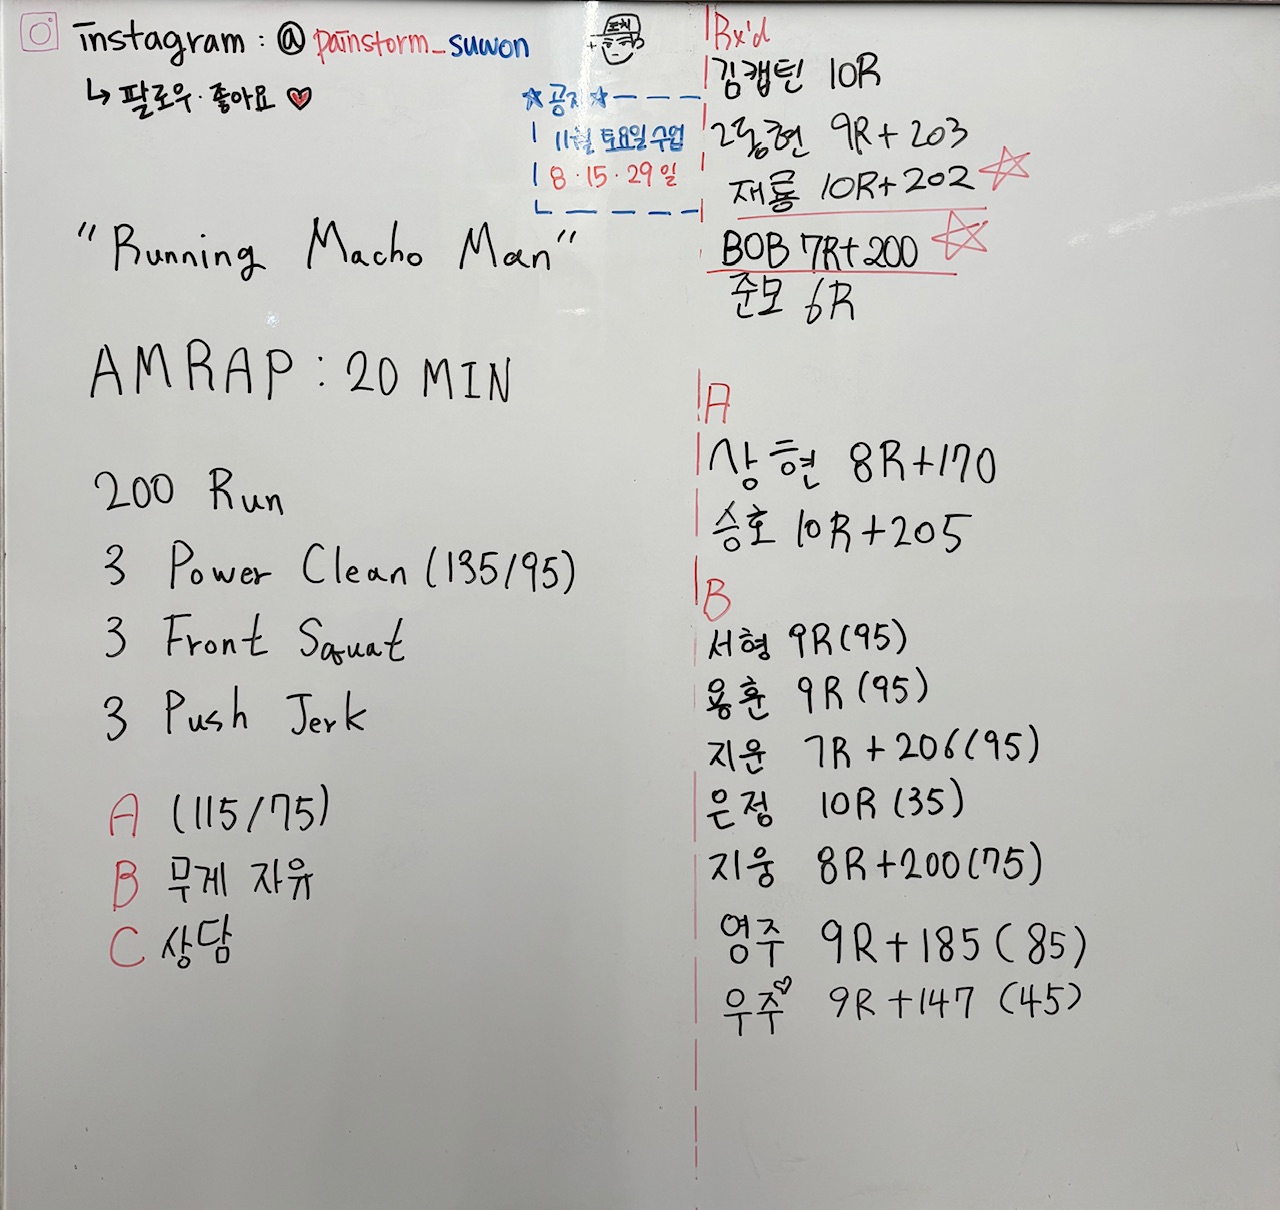 instagram : @painstorm_suwon
↳ 팔로우·좋아요 ♥
코치
☆공지☆
11월 토요일 수업
8·15·29일
"Running Macho Man"
AMRAP : 20 MIN
200 Run
3 Power Clean (135/95)
3 Front Squat
3 Push Jerk
A (115/75)
B 무게 자유
C 상담
Rx'd
김캡틴 10R
2동현 9R+203
재룡 10R+202 ☆
BOB 7R+200 ☆
준모 6R
A
상현 8R+170
승호 10R+205
B
서형 9R(95)
용훈 9R(95)
지운 7R+206(95)
은정 10R(35)
지웅 8R+200(75)
영주 9R+185(85)
우주♡ 9R+147 (45)